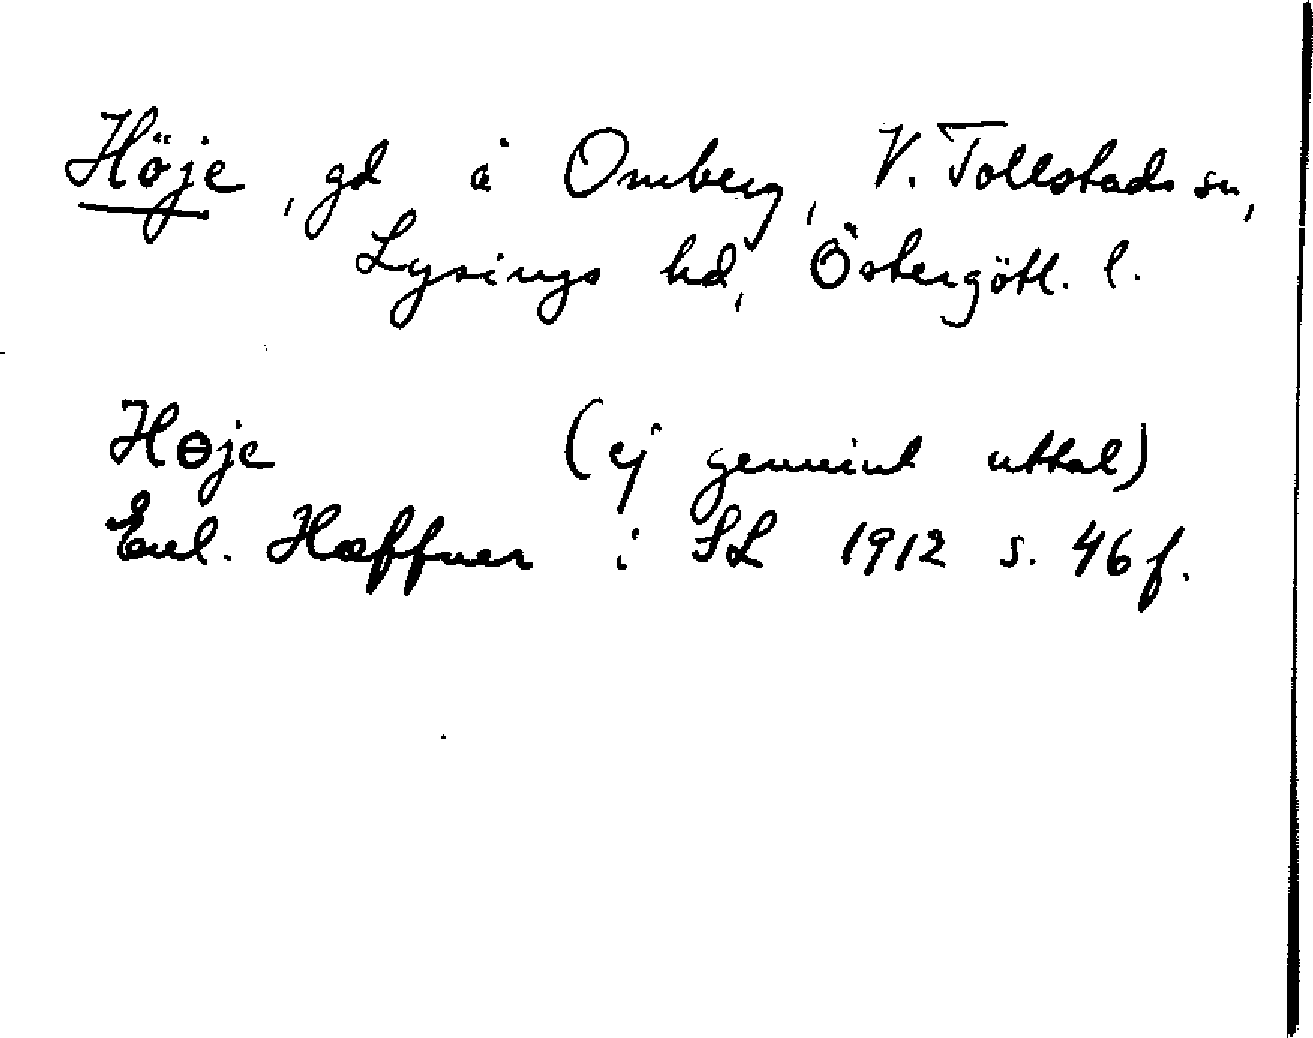 Höje, gd å Omberg, V. Tollstads sn,
Lysings hd, Östergötl. l.
Høje (ej genuint uttal)
Enl. Hæffner i SL 1912 s. 46 f.